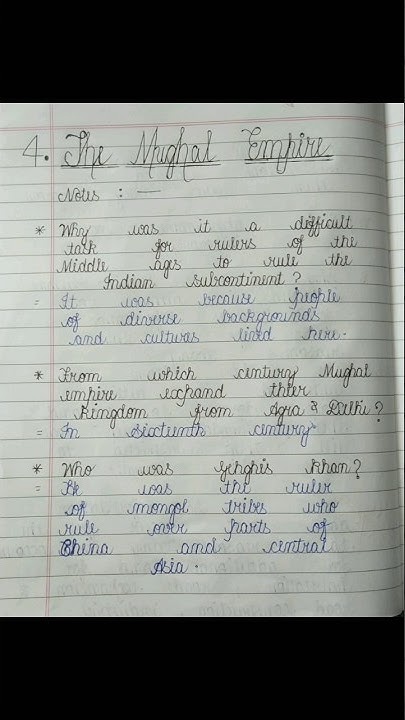 4. The Mughal Empire
Notes : —
* Why was it a difficult
talk for rulers of the
Middle ages to rule the
Indian subcontinent ?
= It was because people
of diverse backgrounds
and cultures lived here.
* From which century Mughal
empire expand thier
Kingdom from Agra & Delhi ?
= In Sixteenth century
* Who was Genghis Khan ?
= He was the ruler
of mongol tribes who
rule over parts of
China and central
Asia .